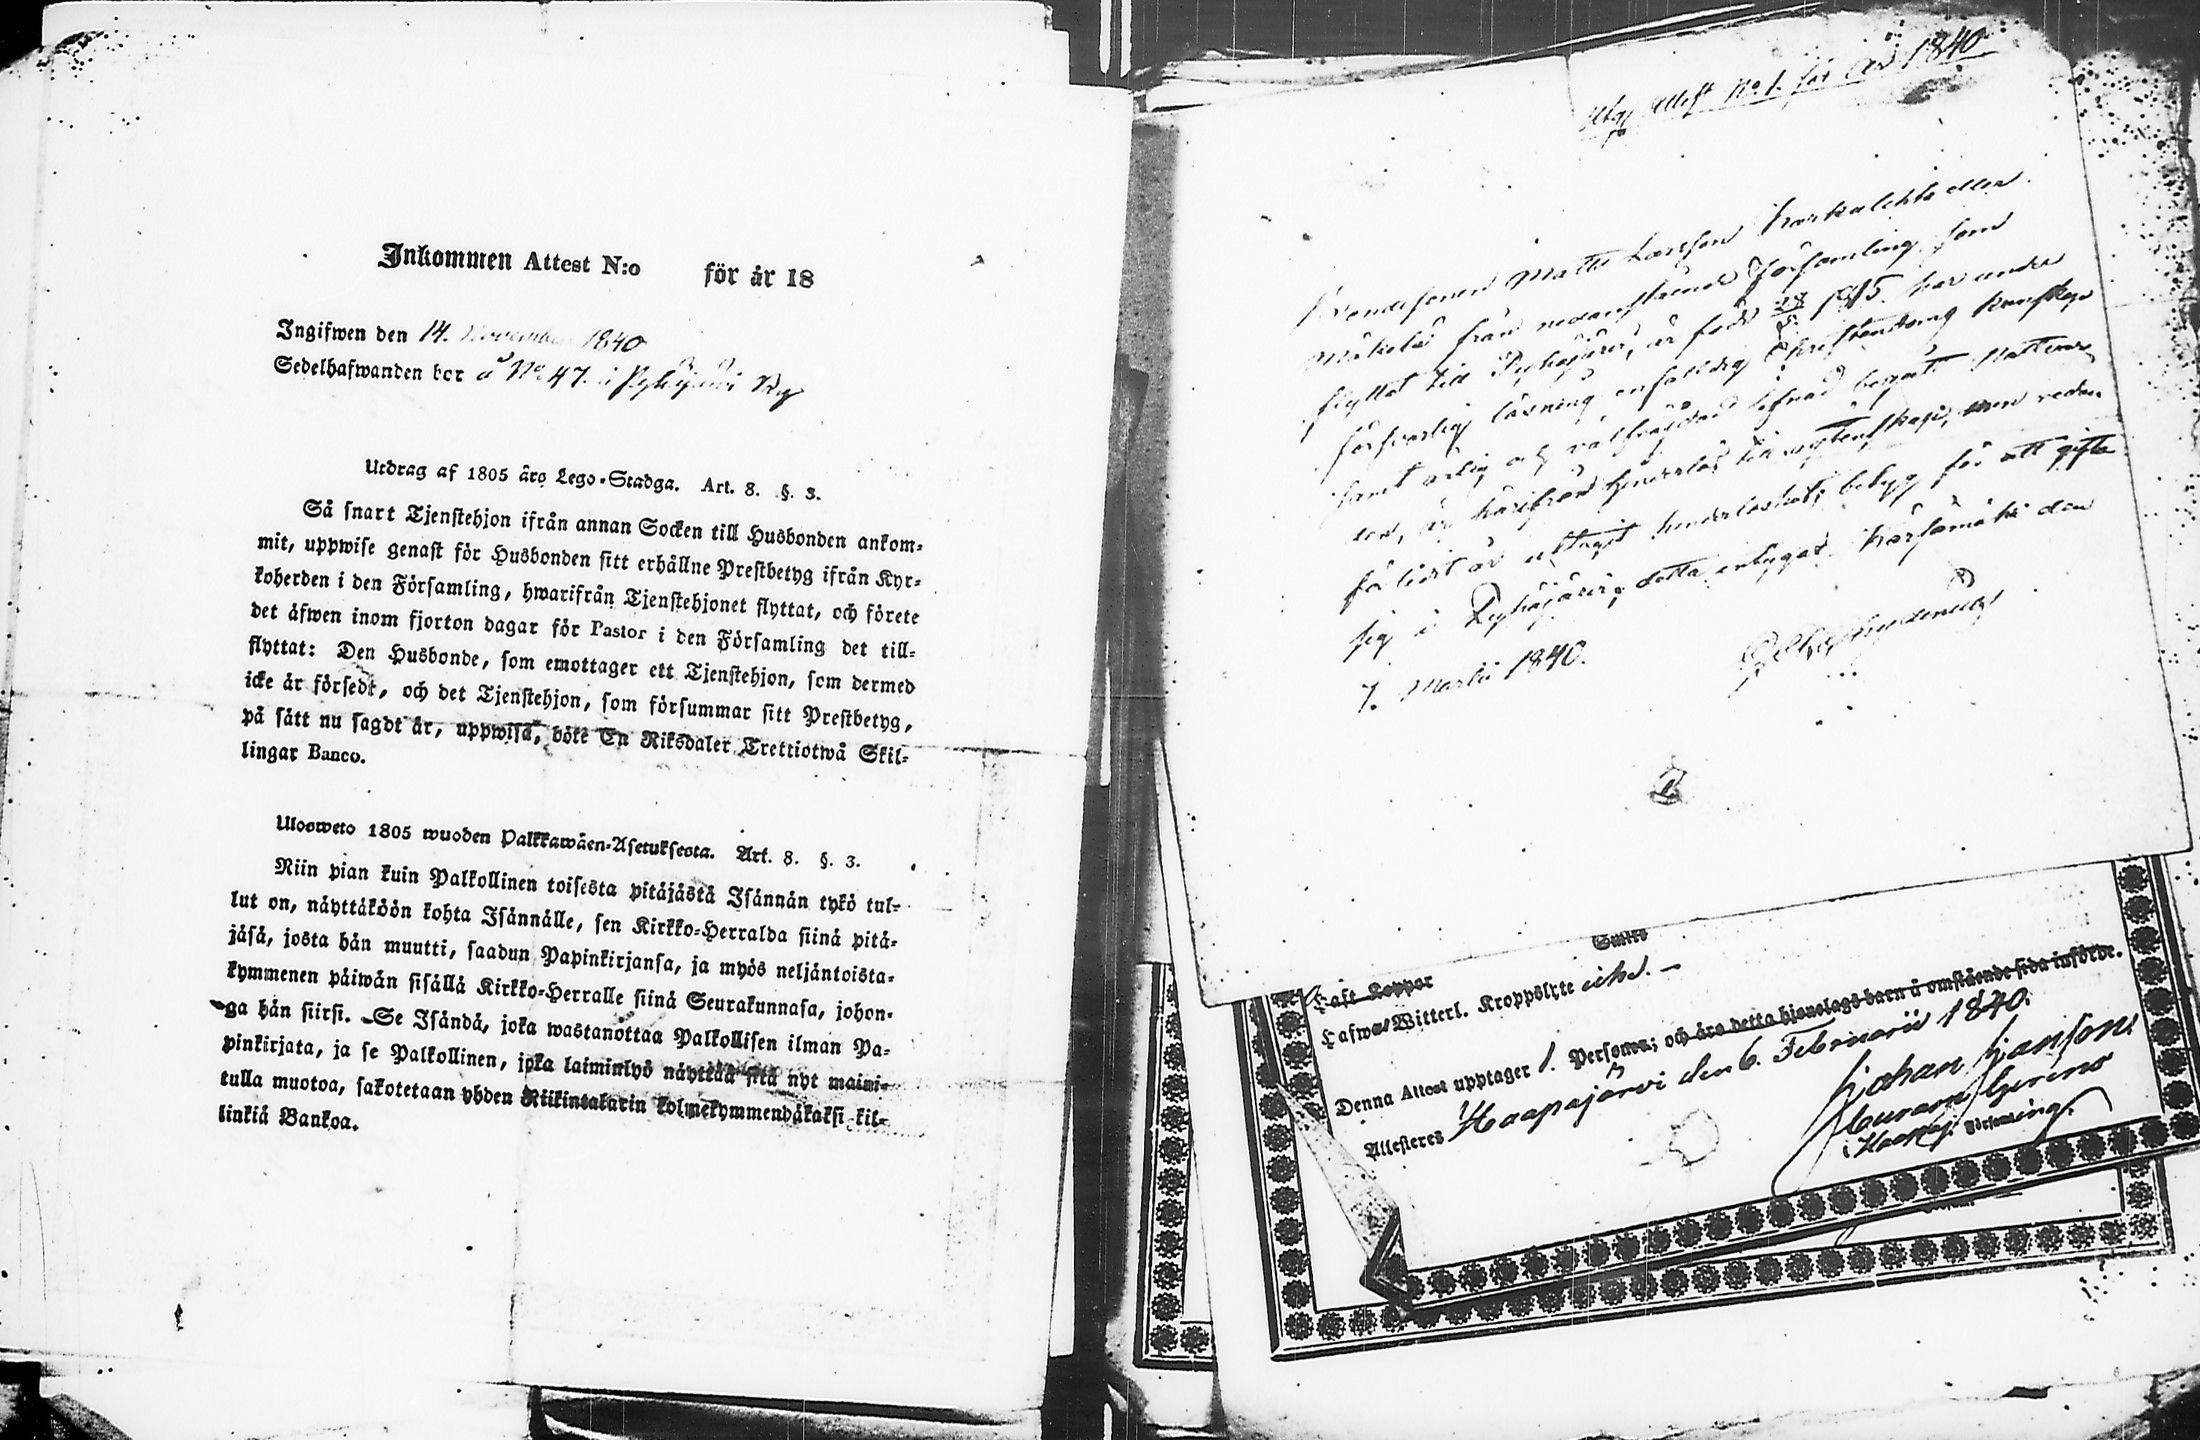 Inkommen Attest N:o för år 18
Ingifwen den 14. November 1840
Sedelhafwanden bor å No 47. i Pyhäjärvi By
Utdrag af 1805 års Lego-Stadga. Art. 8. §. 3.
Så snart Tjenstehjon ifrån annan Socken till Husbonden ankom-
mit, uppwise genast för Husbonden sitt erhållne Prestbetyg ifrån Kyr-
koherden i den Församling, hwarifrån Tjenstehjonet flyttat, och förete
det äfwen inom fjorton dagar för Pastor i den Församling det till-
flyttat: Den Husbonde, som emottager ett Tjenstehjon, som dermed
icke är försedt, och det Tjenstehjon, som försummar sitt Prestbetyg,
på sätt nu sagdt är, uppwisa, böte En Riksdaler Trettiotwå Skil-
lingar Banco.
Ulosweto 1805 wuoden Palkkawäen-Asetuksesta. Art. 8. §. 3.
Niin pian kuin Palkollinen toisesta pitäjästä Isännän tykö tul-
lut on, näyttäköön kohta Isännälle, sen Kirkko-Herralda siinä pitä-
jäsä, josta hän muutti, saadun Papinkirjansa, ja myös neljäntoista-
kymmenen päiwän sisällä Kirkko-Herralle siinä Seurakunnasa, johon-
ga hän siirsi. Se Isändä, joka wastanottaa Palkollisen ilman Pa-
pinkirjata, ja se Palkollinen, joka laiminlyö näyttää sitä nyt maini-
tulla muotoa, sakotetaan yhden Riikintalarin kolmekymmendäkaksi kil-
linkiä Bankoa.
Attest No 1. för År 1840
Bondesonen Matts Larsson Karkulehto eller
Mäkelä från nedanstående Församling, som
flyttat till Pyhäjärvi, är född 28/5 1815. har under
försvarlig läsning enfaldig Christendoms kunskap
samt ärlig och välfrejdad lefnad begått Nattvar-
den, är härifrån hinderlös till ägtenskap, men redan
förlidet år uttagit hinderlöshets betyg för att gifta
sig i Pyhäjärvi; detta intygar. Kärsämäki den
7. Martii 1840.
Haft Koppor
Hafwa Witterl. Kroppslyte icke. –
Denna Attest upptager 1. Person; och äro detta hjonelags barn å omstående sida införde.
Attesteres Haapajärvi den 6. Februarii 1840.
Johan Jansson
Församling.